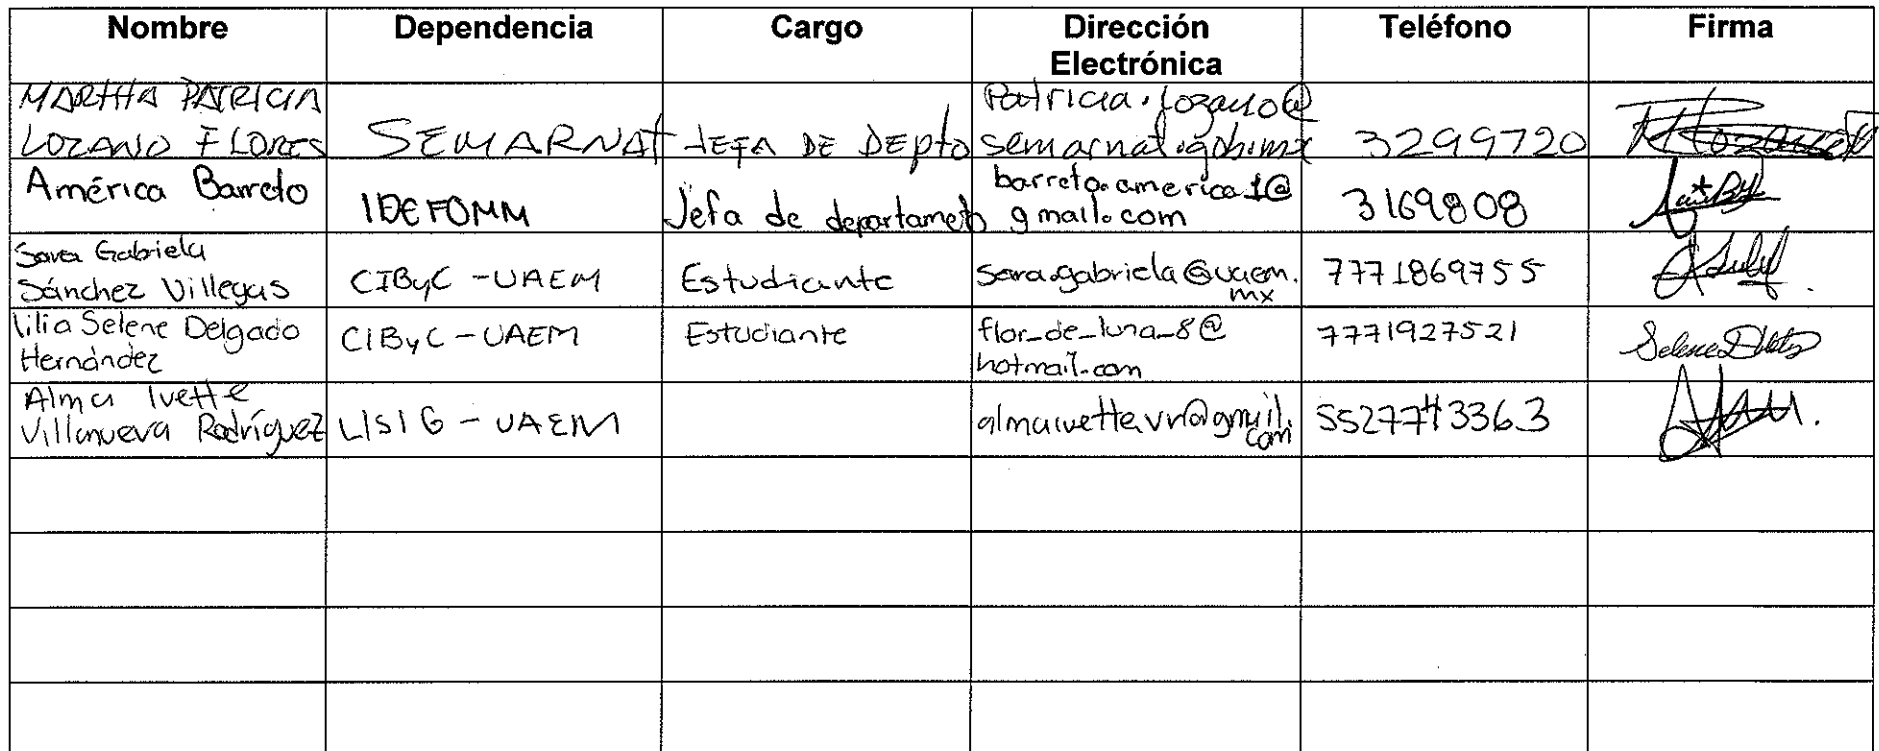 Nombre Dependencia Cargo Dirección Electrónica Teléfono Firma
MARTHA PATRICIA
LOZANO FLORES SEMARNAT JEFA DE DEPTO patricia.lozano@
semarnat.gob.mx 3299720
América Barreto IDEFOMM Jefa de departameto barreto.america1@
gmail.com 3169808
Sara Gabriela
Sánchez Villegas CIByC - UAEM Estudiante sara.gabriela@uaem.
mx 7771869755
Lilia Selene Delgado
Hernández CIByC - UAEM Estudiante flor_de_luna_8@
hotmail.com 7771927521
Alma Ivette
Villanueva Rodríguez LISIG - UAEM almaivette.vr@gmail.
com 5527743363